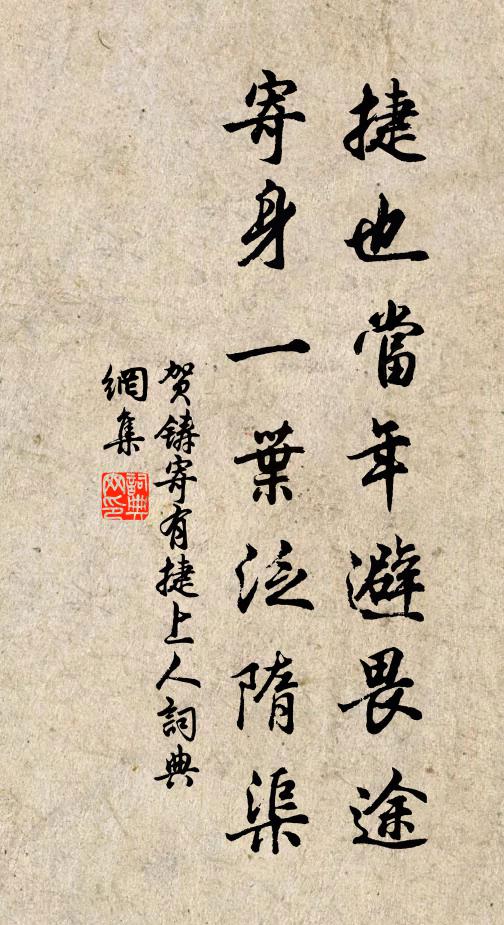 捷也當年避畏途
寄身一葉泛隋渠
贺鑄寄有捷上人詞典
網集
詞典
网印